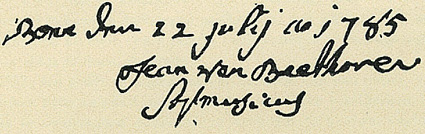 Bonn den 22 julij ao 1785
Jean van Beethoven